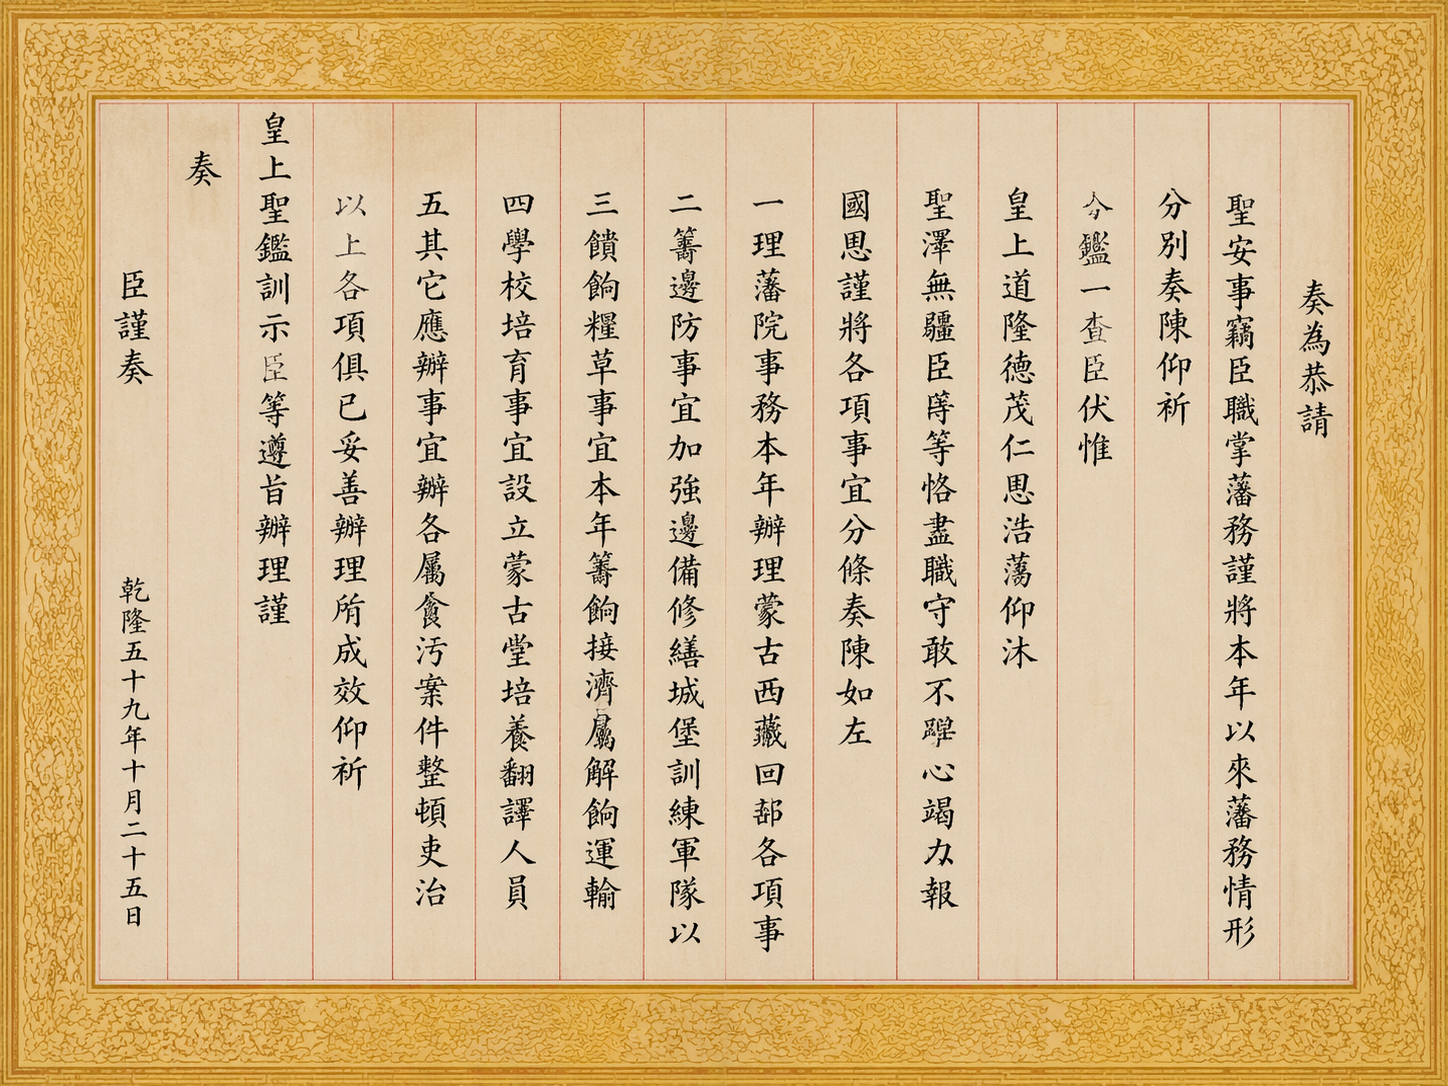 奏為恭請
聖安事竊臣職掌藩務謹將本年以來藩務情形
分別奏陳仰祈
今鑑一查臣伏惟
皇上道隆德茂仁思浩蕩仰沐
聖澤無疆臣等恪盡職守敢不心竭力報
國思謹將各項事宜分條奏陳如左
一理藩院事務本年辦理蒙古西藏回部各項事
二籌邊防事宜加強邊備修繕城堡訓練軍隊以
三饋餉糧草事宜本年籌餉接濟屬解餉運輸
四學校培育事宜設立蒙古堂培養翻譯人員
五其它應辦事宜辦各屬貪污案件整頓吏治
以上各項俱已妥善辦理所成效仰祈
皇上聖鑑訓示臣等遵旨辦理謹
奏
臣謹奏
乾隆五十九年十月二十五日